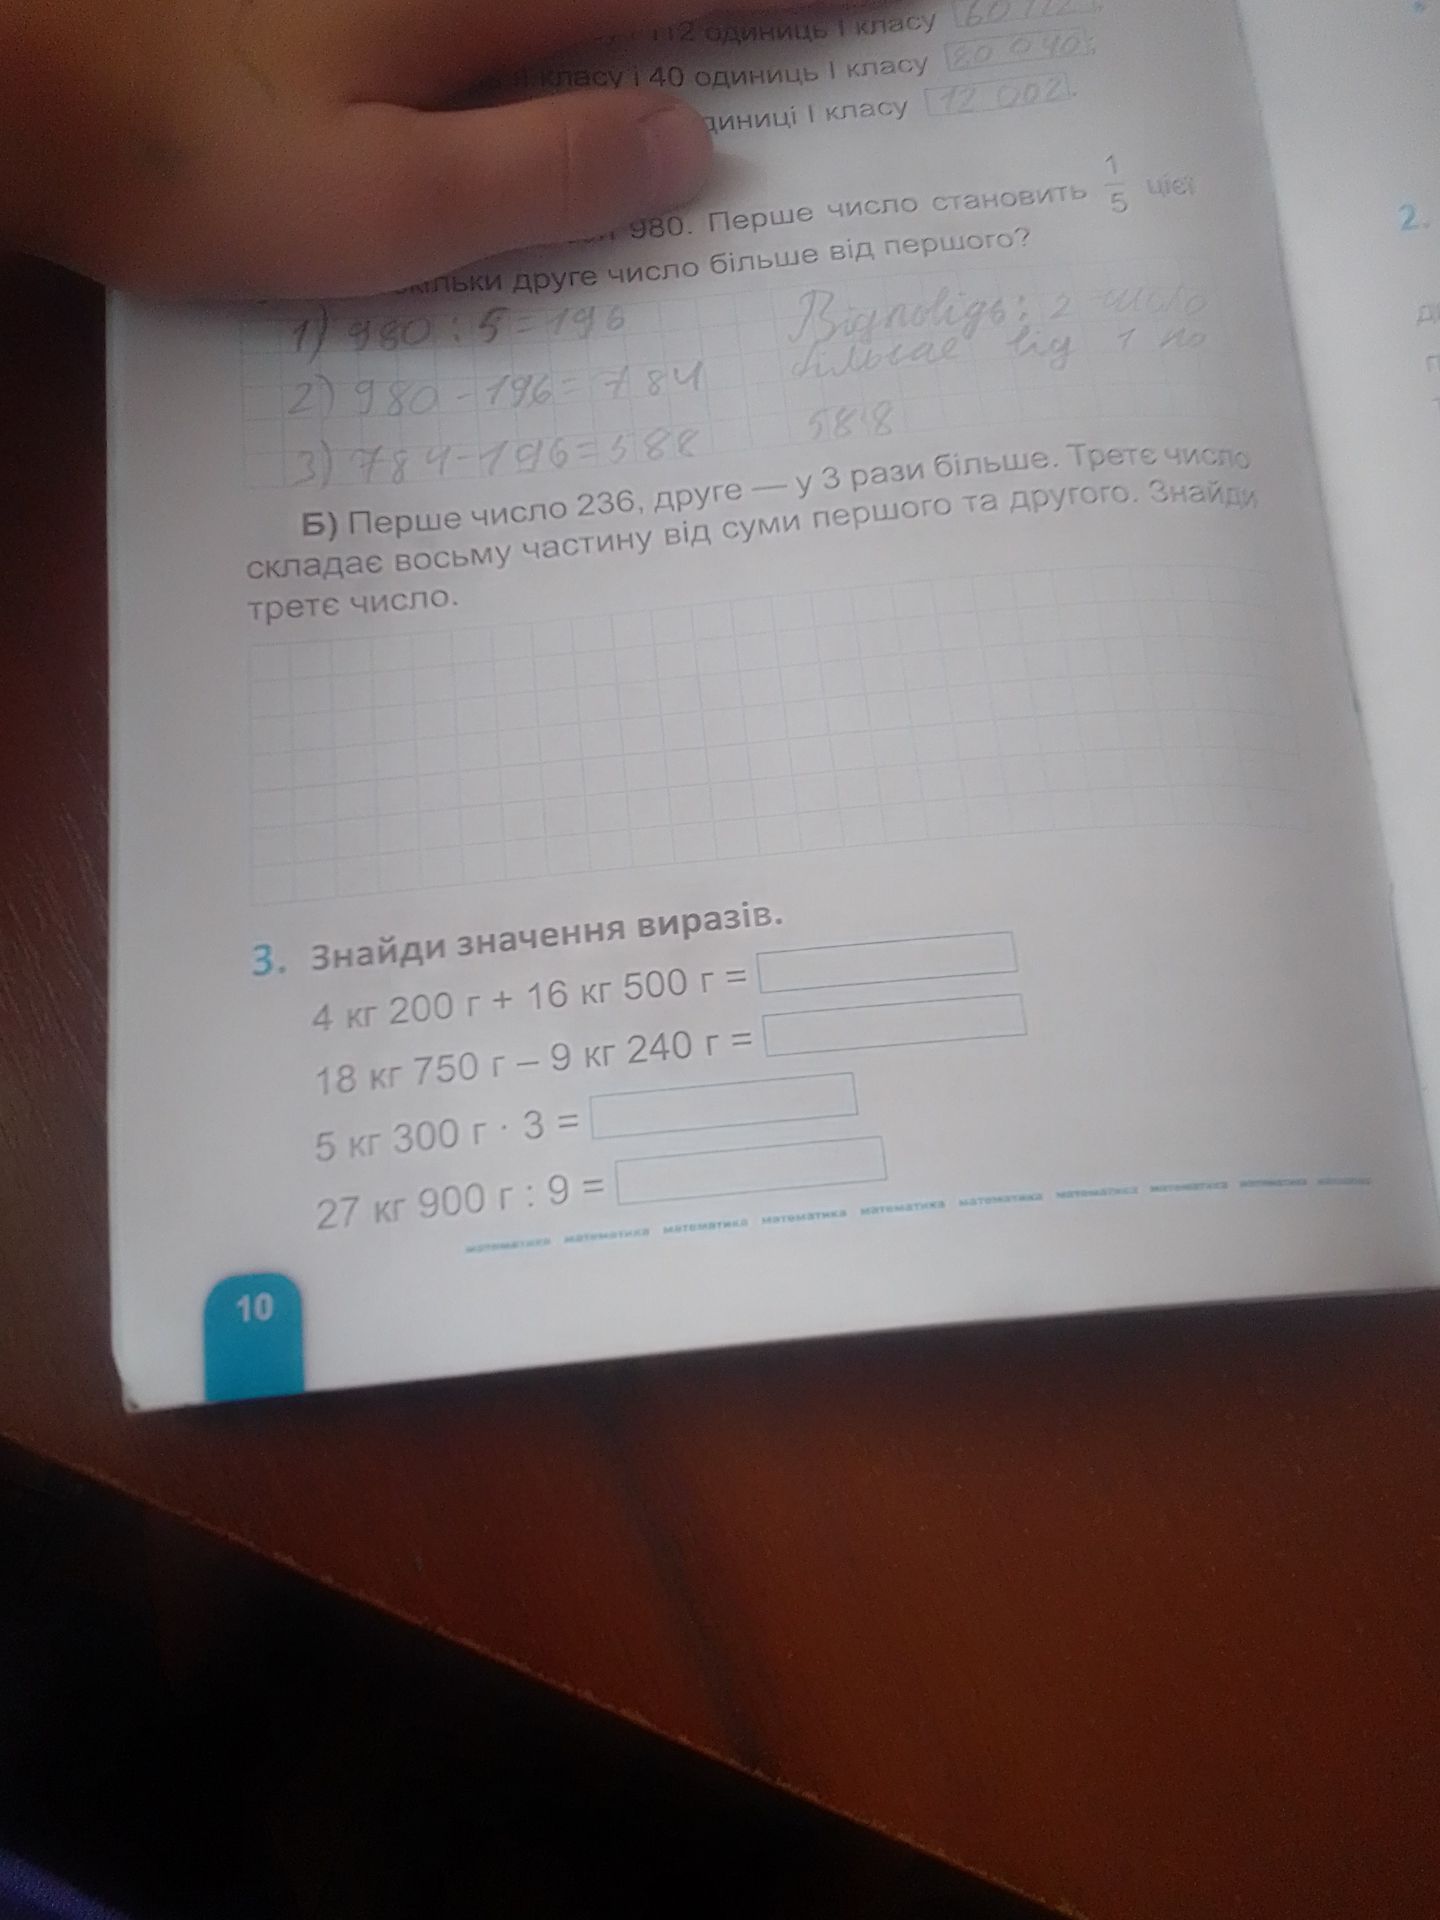 112 одиниць І класу 60 112
класу і 40 одиниць І класу 80 040;
диниці І класу 12 002.
980. Перше число становить 1/5 цієї
кільки друге число більше від першого?
1) 980 : 5 = 196 Відповідь: 2 число
2) 980 - 196 = 784 більше від 1 на
3) 784 - 196 = 588 588
Б) Перше число 236, друге — у 3 рази більше. Третє число
складає восьму частину від суми першого та другого. Знайди
третє число.
3. Знайди значення виразів.
4 кг 200 г + 16 кг 500 г =
18 кг 750 г – 9 кг 240 г =
5 кг 300 г · 3 =
27 кг 900 г : 9 =
математика математика математика математика математика математика математика математика математика
10
2.